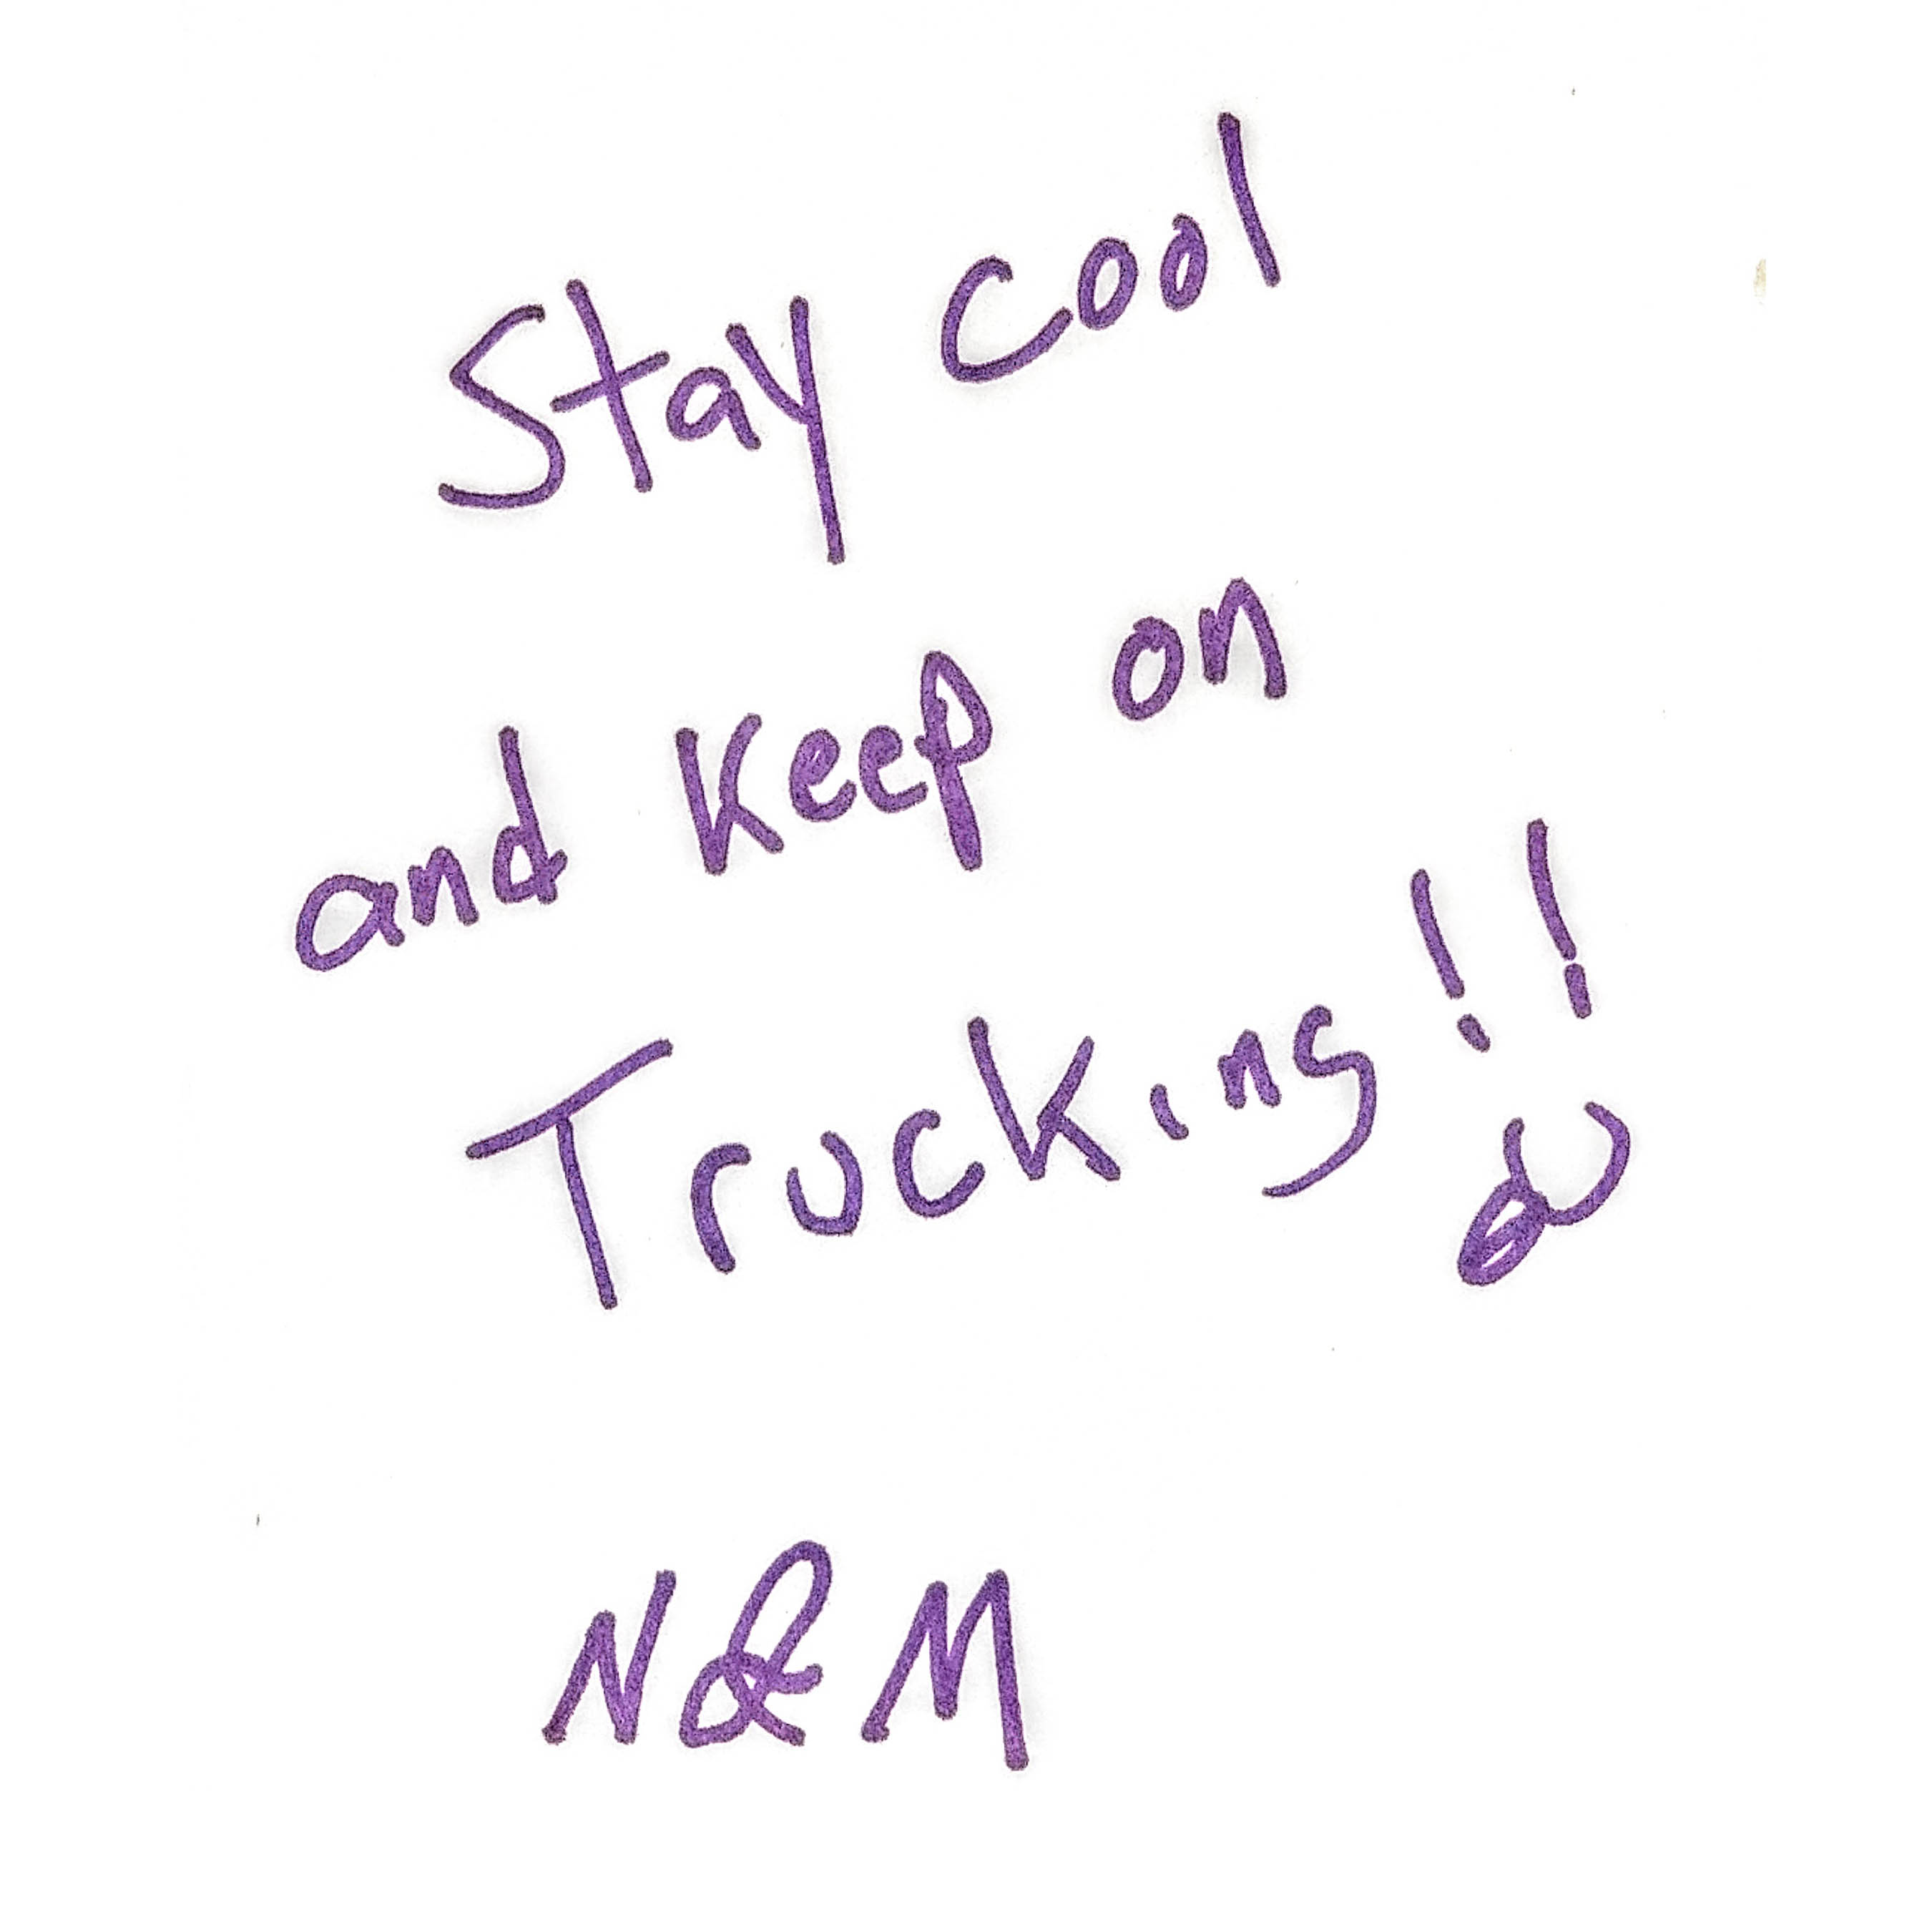 Stay cool
and Keep on
Trucking!!
N&M